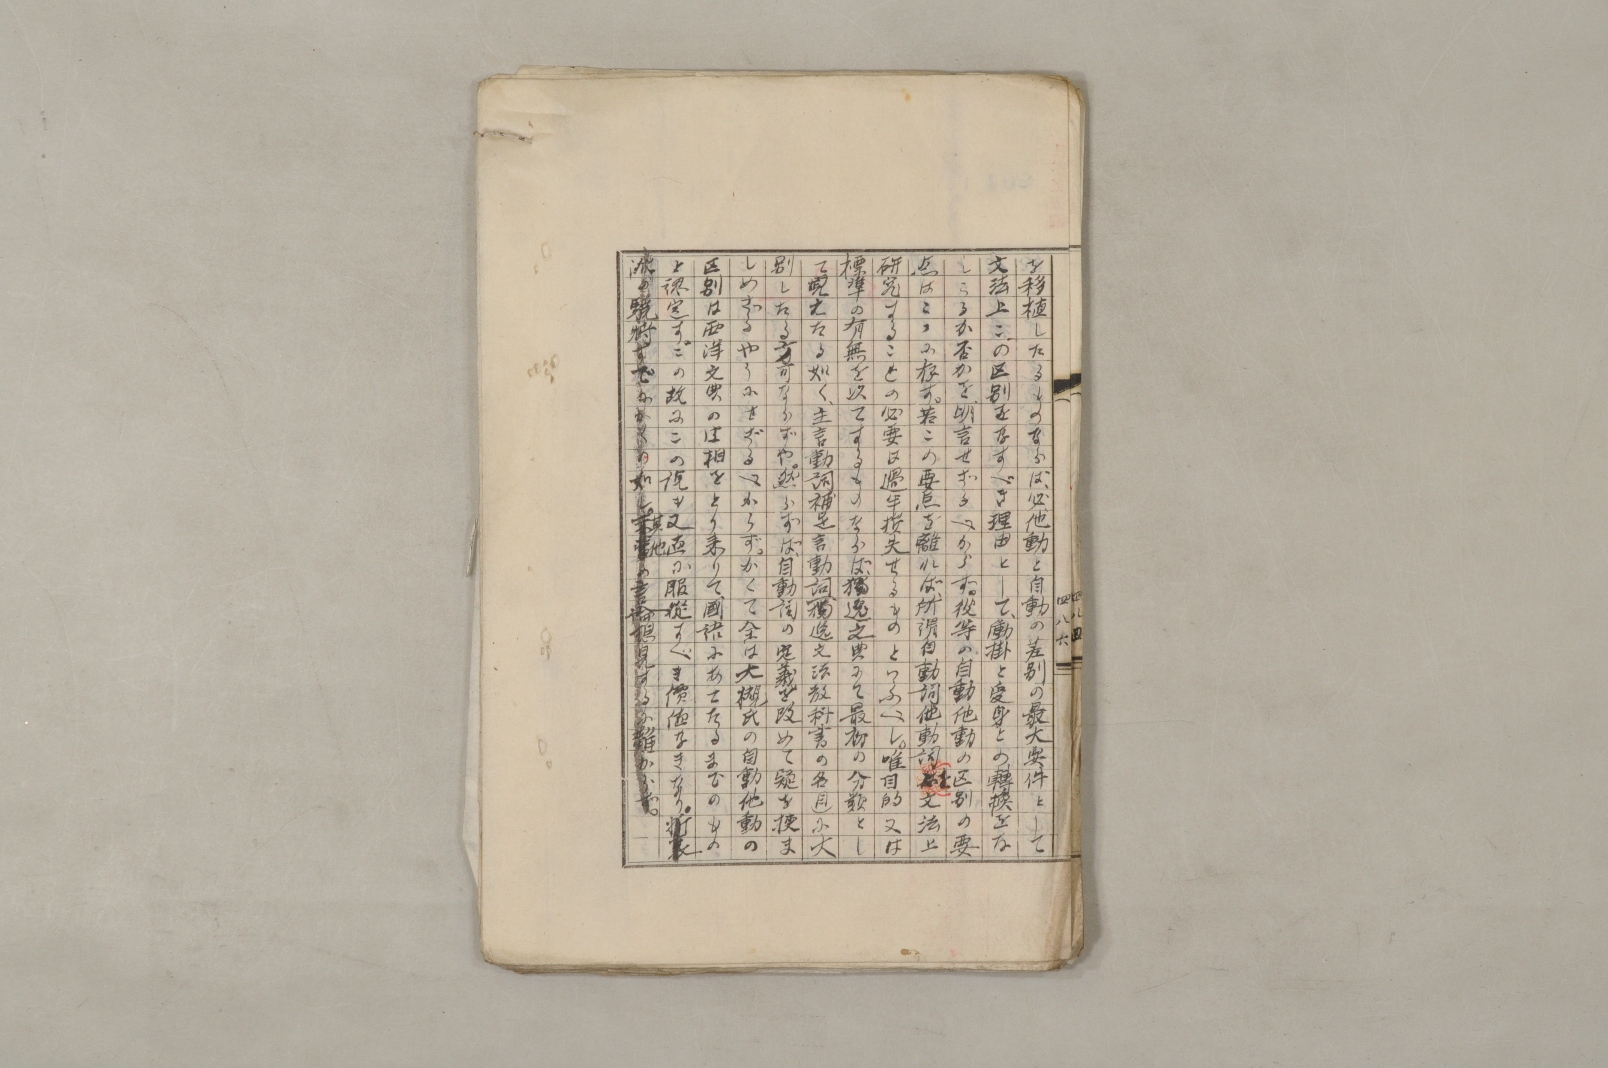 を移植したるものならば、必他動と自動の差別の最大要件として
文法上この区別をなすべき理由として、働掛と受身との轉換をな
しうるか否かを、明言せざるべからず。彼等の自動他動の区別の要
点はこゝに存す。若この要点を離れば、所謂自動詞他動詞 文法上
研究することの必要は過半損失せるものといふべし。唯目的又は
標準の有無を以てするものならば、獨逸文典にて最初の分類とし
て現れたる如く、主言動詞補足言動詞、獨逸文法教科書の名目に大
別したる方可ならずや。然らずば、自動詞の定義を改めて疑を挾ま
しめざるやうにせざるべからず。かくて余は大槻氏の自動他動の
区別は西洋文典の皮相をとり来りて、國語にあてたるまでのもの
と認定す。この故にこの説も又直に服從すべき價値なきなり。
其他
四八六